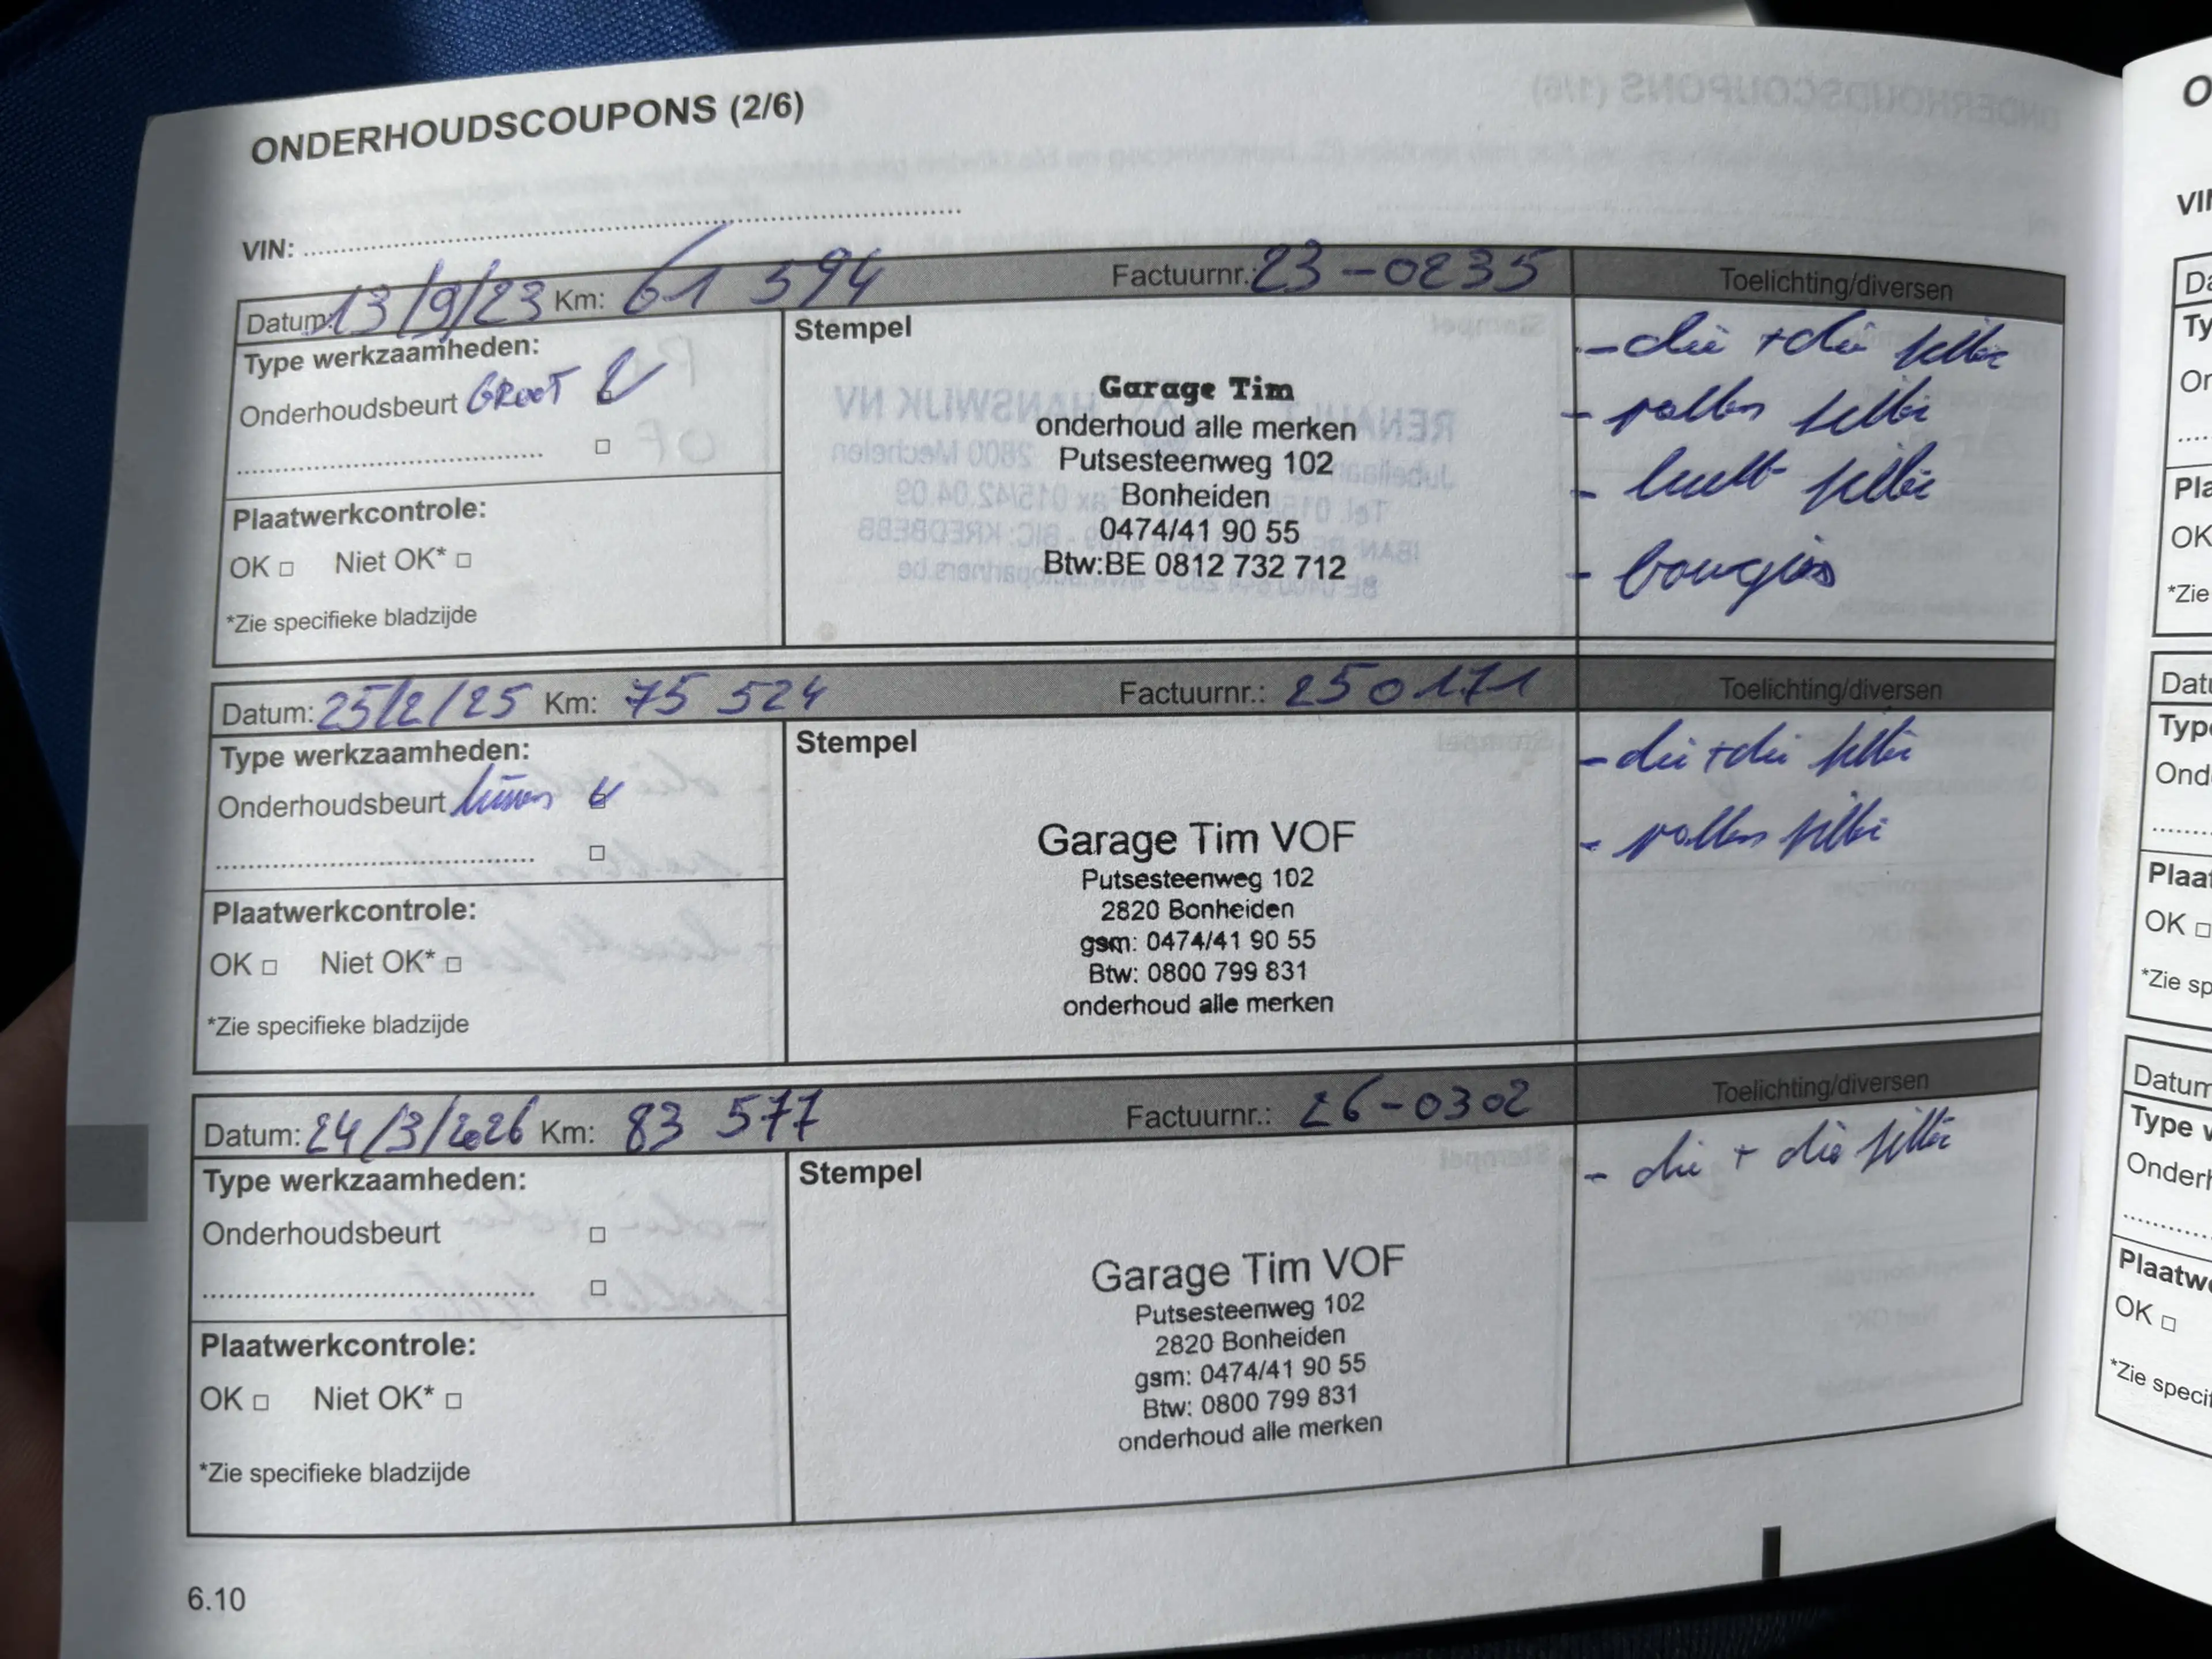 ONDERHOUDSCOUPONS (2/6)
VIN:
Datum: 13/9/23 Km: 61 594 Factuurnr.: 23-0235 Toelichting/diversen
Type werkzaamheden:
Onderhoudsbeurt GROOT
Plaatwerkcontrole:
OK □ Niet OK* □
*Zie specifieke bladzijde
Stempel
Garage Tim
onderhoud alle merken
Putsesteenweg 102
Bonheiden
0474/41 90 55
Btw:BE 0812 732 712
- olie + olie filter
- pollen filter
- lucht filter
- bougies
Datum: 25/2/25 Km: 75 524 Factuurnr.: 250171 Toelichting/diversen
Type werkzaamheden:
Onderhoudsbeurt
Plaatwerkcontrole:
OK □ Niet OK* □
*Zie specifieke bladzijde
Stempel
Garage Tim VOF
Putsesteenweg 102
2820 Bonheiden
gsm: 0474/41 90 55
Btw: 0800 799 831
onderhoud alle merken
- olie + olie filter
- pollen filter
Datum: 24/3/2026 Km: 83 577 Factuurnr.: 26-0302 Toelichting/diversen
Type werkzaamheden:
Onderhoudsbeurt □
Plaatwerkcontrole:
OK □ Niet OK* □
*Zie specifieke bladzijde
Stempel
Garage Tim VOF
Putsesteenweg 102
2820 Bonheiden
gsm: 0474/41 90 55
Btw: 0800 799 831
onderhoud alle merken
- olie + olie filter
6.10